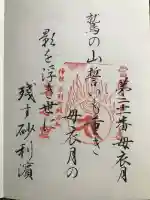 第二十一番母衣月
鷲の山誓いも重き
母衣月の
影を浮き世に
残す砂利濱